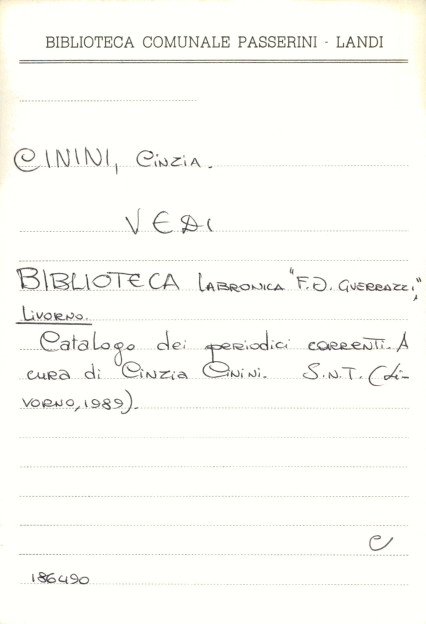 BIBLIOTECA COMUNALE PASSERINI - LANDI
CININI, Cinzia.
VEDI
BIBLIOTECA LABRONICA "F.D. GUERRAZZI",
LIVORNO.
Catalogo dei periodici correnti. A
cura di Cinzia Cinini. S.n.T. (Li-
vorno, 1989).
C
186490